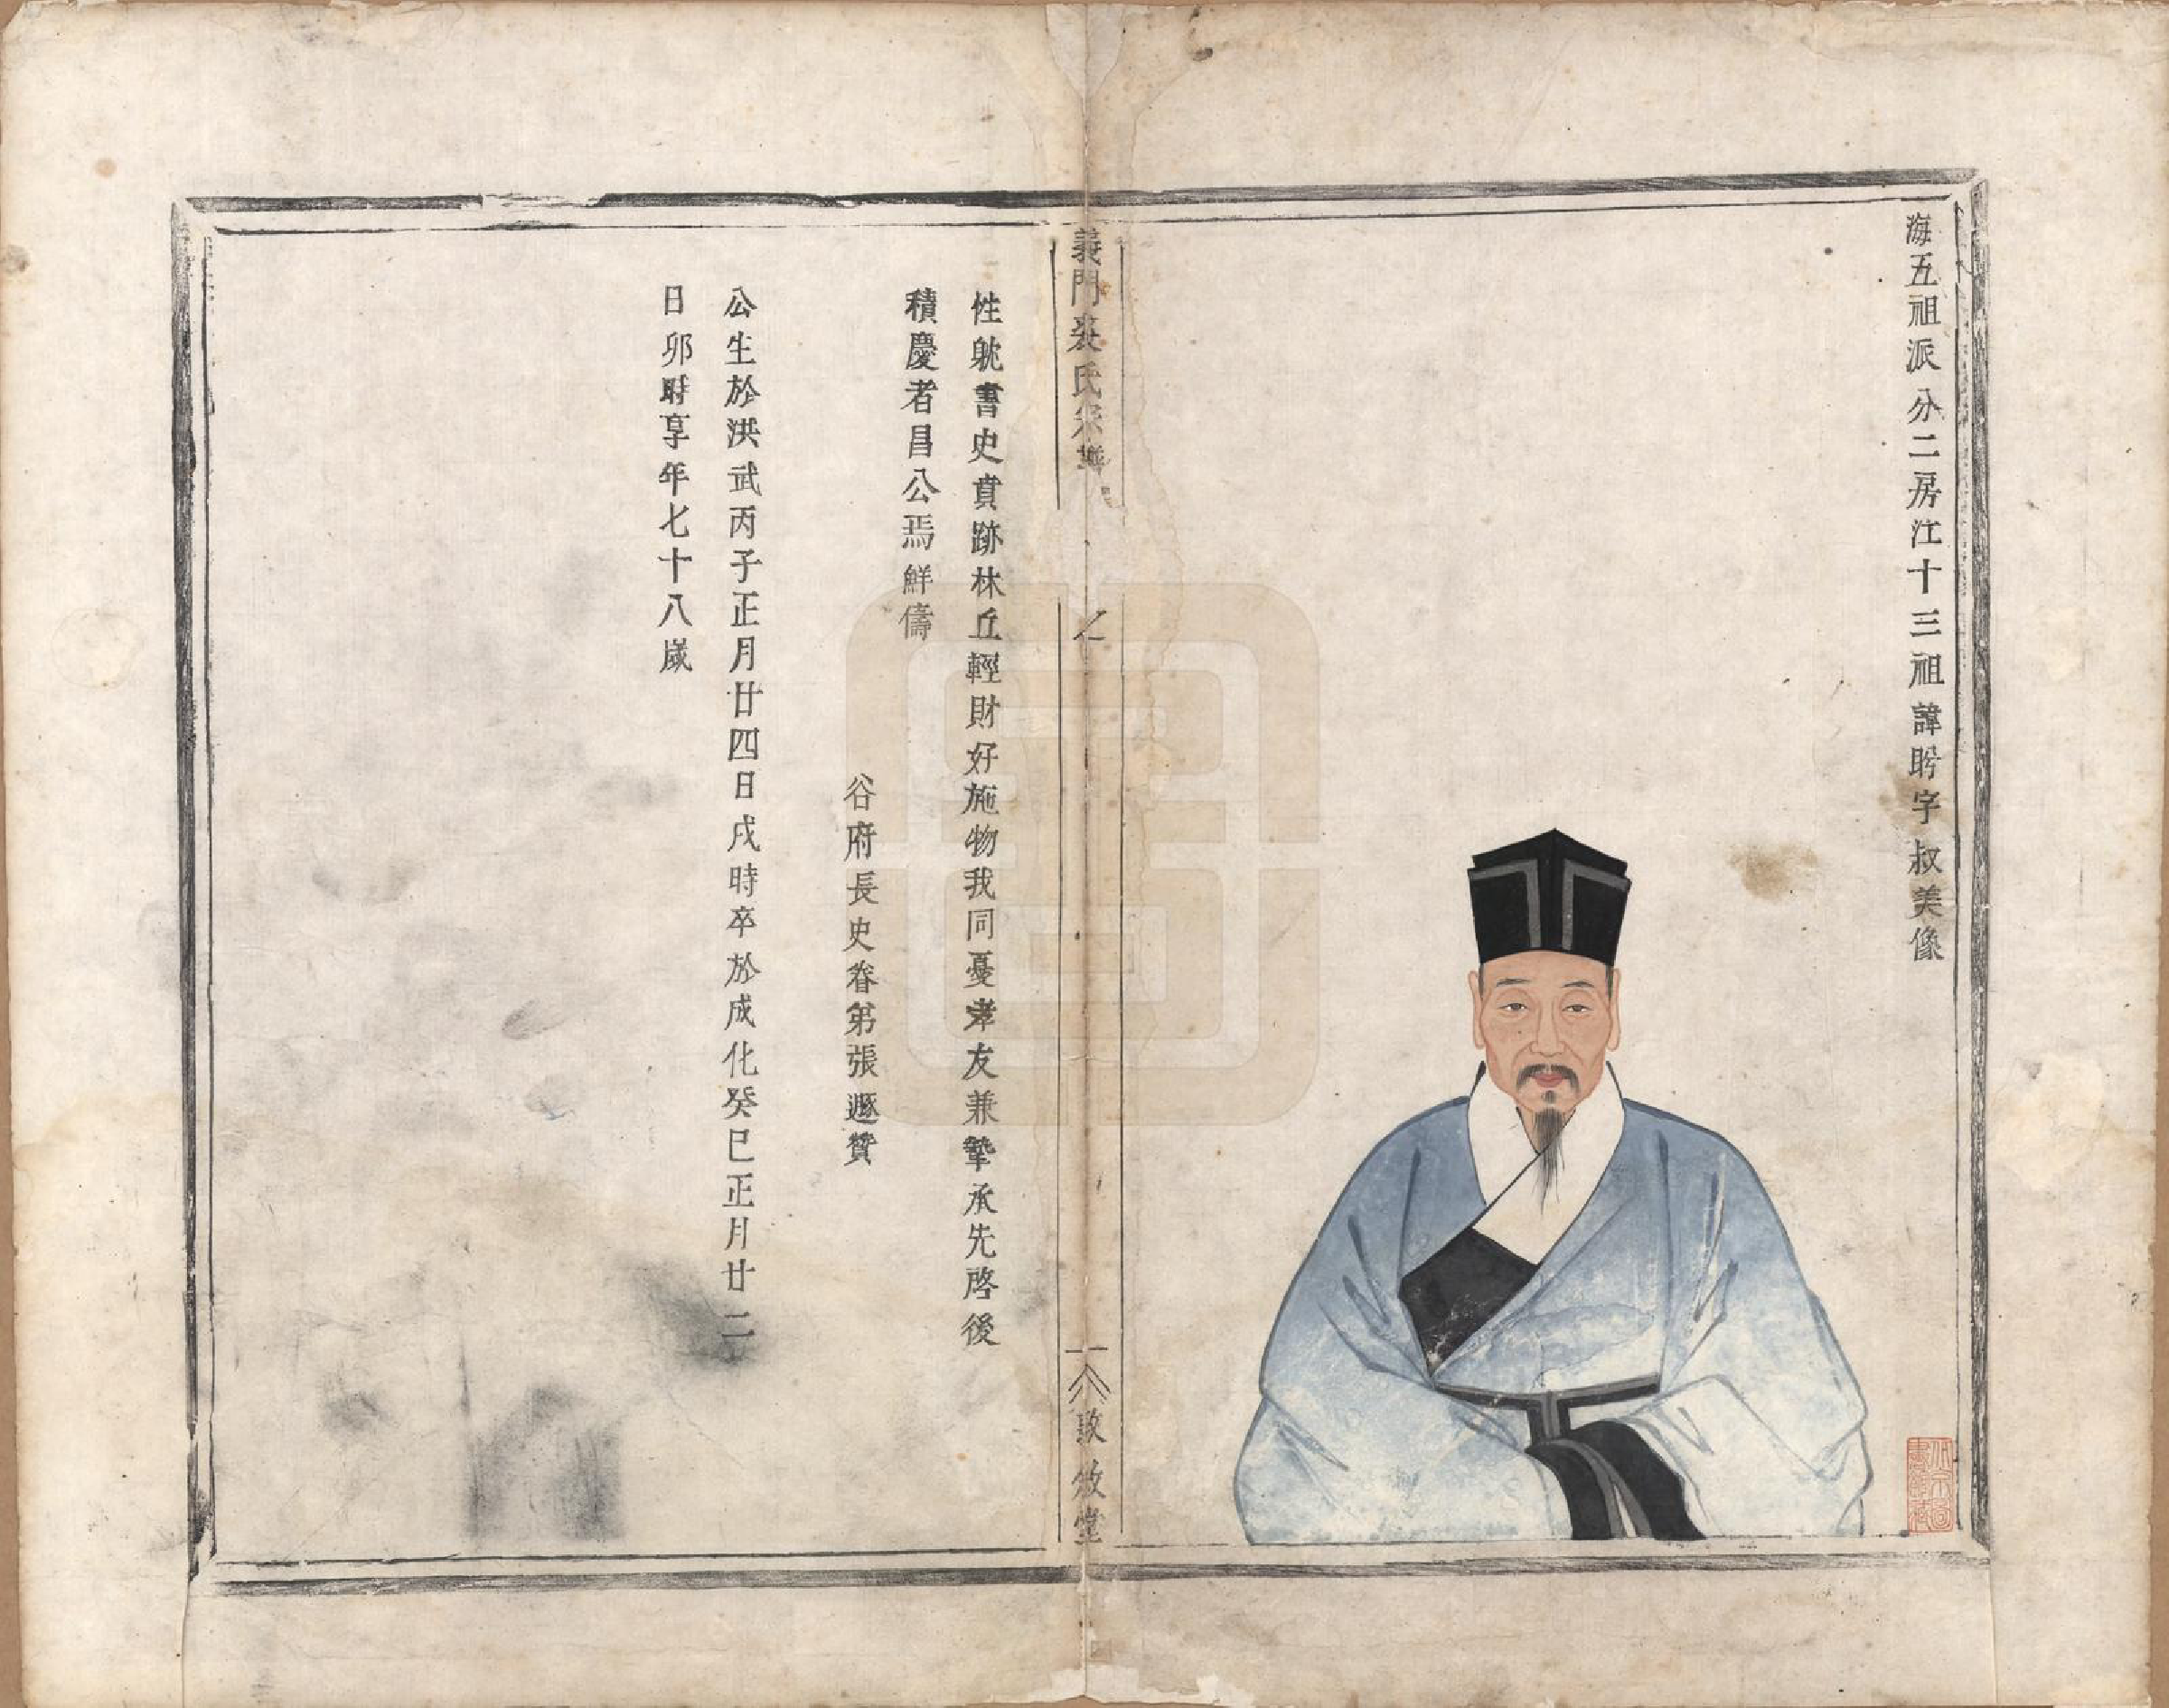 海五祖派分二房江十三祖諱盻字叔美像
義門裘氏宗譜
敦敘堂
性躭書史賁跡林丘輕財好施物我同憂孝友兼摯承先啓後
積慶者昌公焉鮮儔
谷府長史眷弟張遯贊
公生於洪武丙子正月廿四日戌時卒於成化癸巳正月廿二
日卯時享年七十八歲